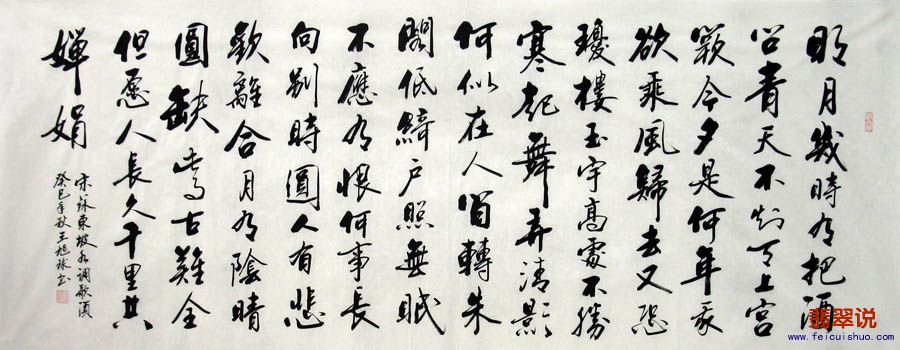 明月幾時有把酒
问青天不知天上宫
闕今夕是何年我
欲乘風歸去又恐
瓊樓玉宇高處不勝
寒起舞弄清影
何似在人间轉朱
閣低綺户照無眠
不應有恨何事長
向别時圓人有悲
歡離合月有陰晴
圓缺此事古難全
但愿人長久千里共
嬋娟
宋蘇東坡水调歌頭
癸巳年秋王旭球书
翡翠说
www.feicuishuo.com